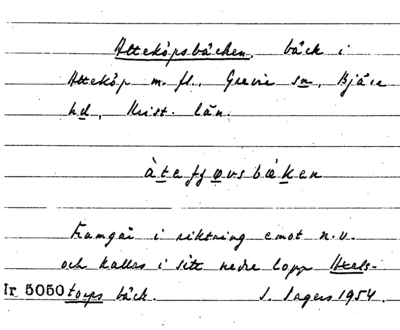 Atteköpsbäcken, bäck i
Atteköp m. fl., Grevie sn, Bjäre
hd, Krist. län.
àtaʃøvsbæken
Framgår i riktning emot n.v.
och kallas i sitt nedre lopp Axels-
Nr 5050 torps bäck. S. Sagers 1954.